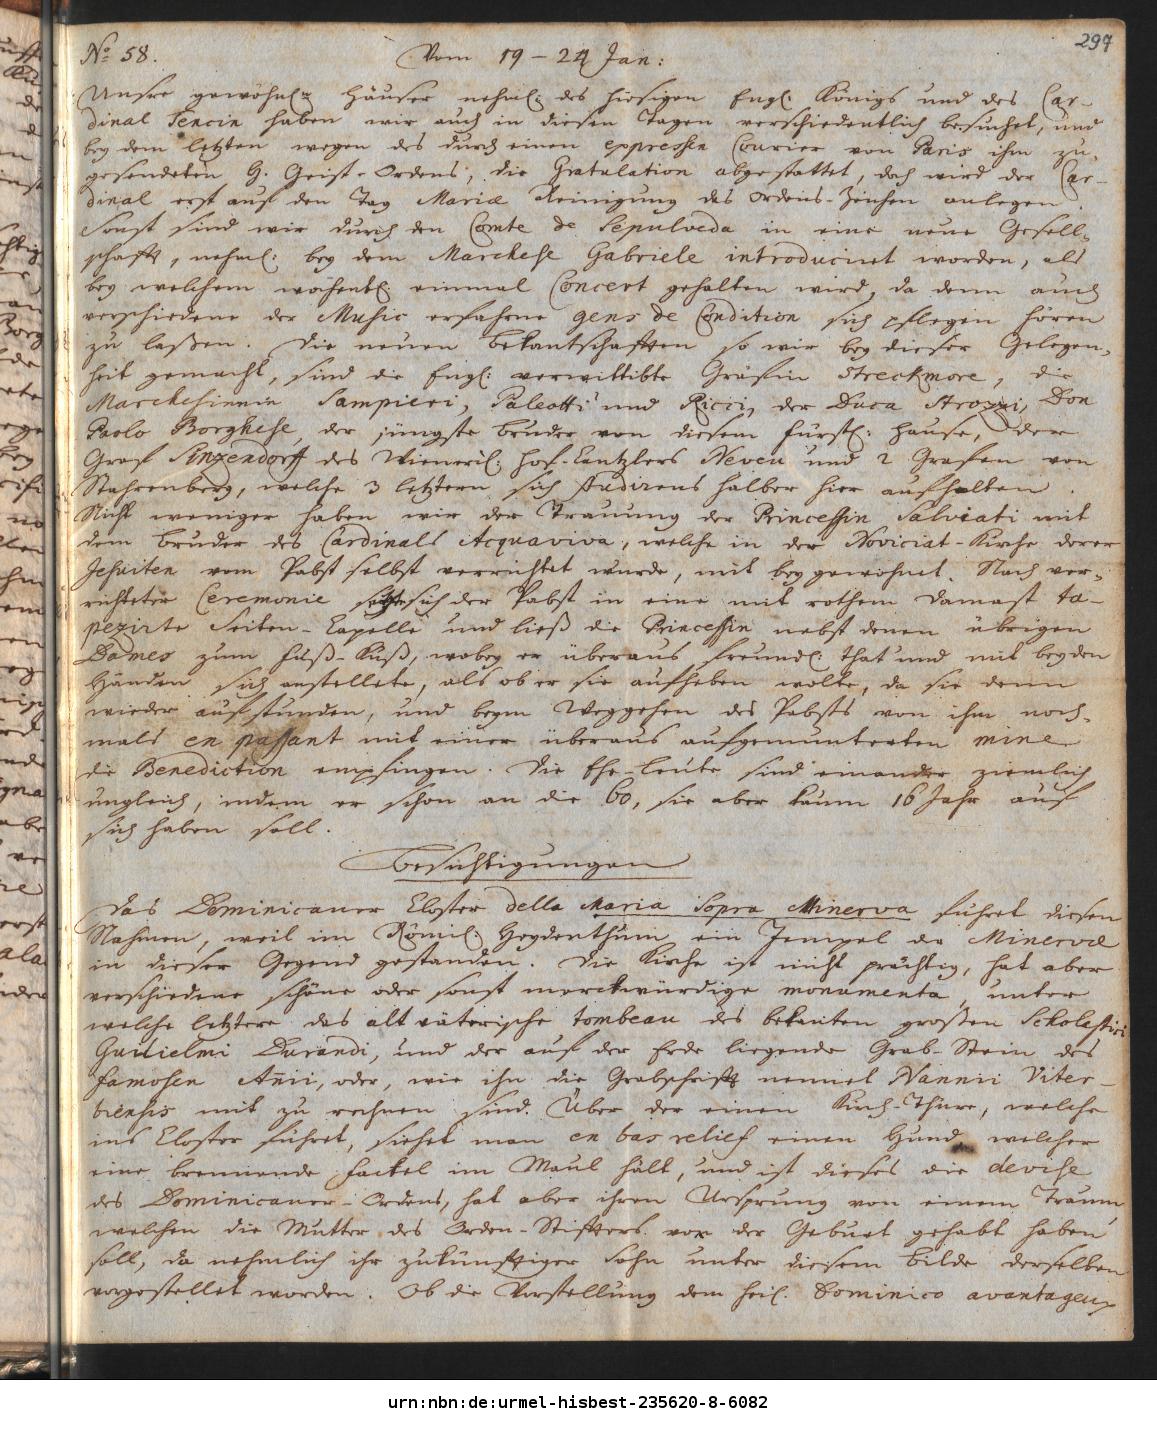 297
No. 58. Vom 19 – 24 Jan:
Unsre gewöhnl: Häuser nehml: des hiesigen Engl: Königs und des Car-
dinal Tencin haben wir auch in diesen Tagen verschiedentlich besuchet, und
bey dem letzten wegen des durch einen expressen Courier von Paris ihm zu-
gesendeten H. Geist-Ordens, die Gratulation abgestattet, doch wird der Car-
dinal erst auf den Tag Mariæ Reinigung das Ordens-Zeichen anlegen.
Sonst sind wir durch den Comte de Sepulveda in eine neue Gesell-
schafft, nehml: bey dem Marchese Gabriele introduciret worden, als
bey welchem wöchentl: einmal Concert gehalten wird, da denn auch
verschiedene der Music erfahrne gens de Condition sich pflegen hören
zu laßen. Die neuen Bekantschafften so wir bey dieser Gelegen-
heit gemacht, sind die Engl: verwittibte Gräfin Streckmore, die
Marchesinnin Sampieri, Paleotti und Ricci, der Duca Strozzi, Don
Paolo Borghese, der jüngste Bruder von diesem fürstl: Hause, der
Graf Sinzendorff des Wieneril: Hof-Cantzlers Neveu und 2 Grafen von
Stahrenberg, welche 3 letztern sich studirens halber hier aufhalten.
Nicht weniger haben wir der Trauung der Princessin Salviati mit
dem Bruder des Cardinals Acquaviva, welche in der Noviciat-Kirche derer
Jesuiten vom Pabst selbst verrichtet wurde, mit beygewohnet. Nach ver-
richteter Ceremonie setzte sich der Pabst in eine mit rothem Damast ta-
pezirte Seiten-Capelle und ließ die Princessin nebst denen übrigen
Dames zum Fuß-Kuß, wobey er überaus freundl: that und mit beyden
Händen sich anstellete, als ob er sie aufheben wolte, da sie denn
wieder aufstunden, und beym Weggehen des Pabsts von ihm noch-
mals en passant mit einer überaus aufgemunterten mine
die Benediction empfingen. Die Ehe-Leute sind einander ziemlich
ungleich, indem er schon an die 60, sie aber kaum 16 Jahr auf
sich haben soll.
Besichtigungen
Das Dominicaner Closter della Maria Sopra Minerva führet diesen
Nahmen, weil im Römil: Heydenthum ein Tempel der Minervæ
in dieser Gegend gestanden. Die Kirche ist nicht prächtig, hat aber
verschiedene schöne oder sonst merckwürdige monumenta, unter
welche letztere das altväterische tombeau des bekanten großen Scholastici
Guilielmi Durandi, und der auf der Erde liegende Grab-Stein des
famosen Añii, oder, wie ihn die Grabschrifft nennet Nannii Viter-
biensis mit zu rechnen sind. Über der einen Kirch-Thüre, welche
ins Closter führet, siehet man en bas relief einen Hund welcher
eine brennende Fackel im Maul hält, und ist dieses die devise
des Dominicaner-Ordens, hat aber ihren Ursprung von einem Traum
welchen die Mutter des Orden-Stiffters vor der Geburt gehabt haben
soll, da nehmlich ihr zukünfftiger Sohn unter diesem Bilde derselben
vorgestellet worden. Ob die Vorstellung dem heil: Dominico avantageux
urn:nbn:de:urmel-hisbest-235620-8-6082